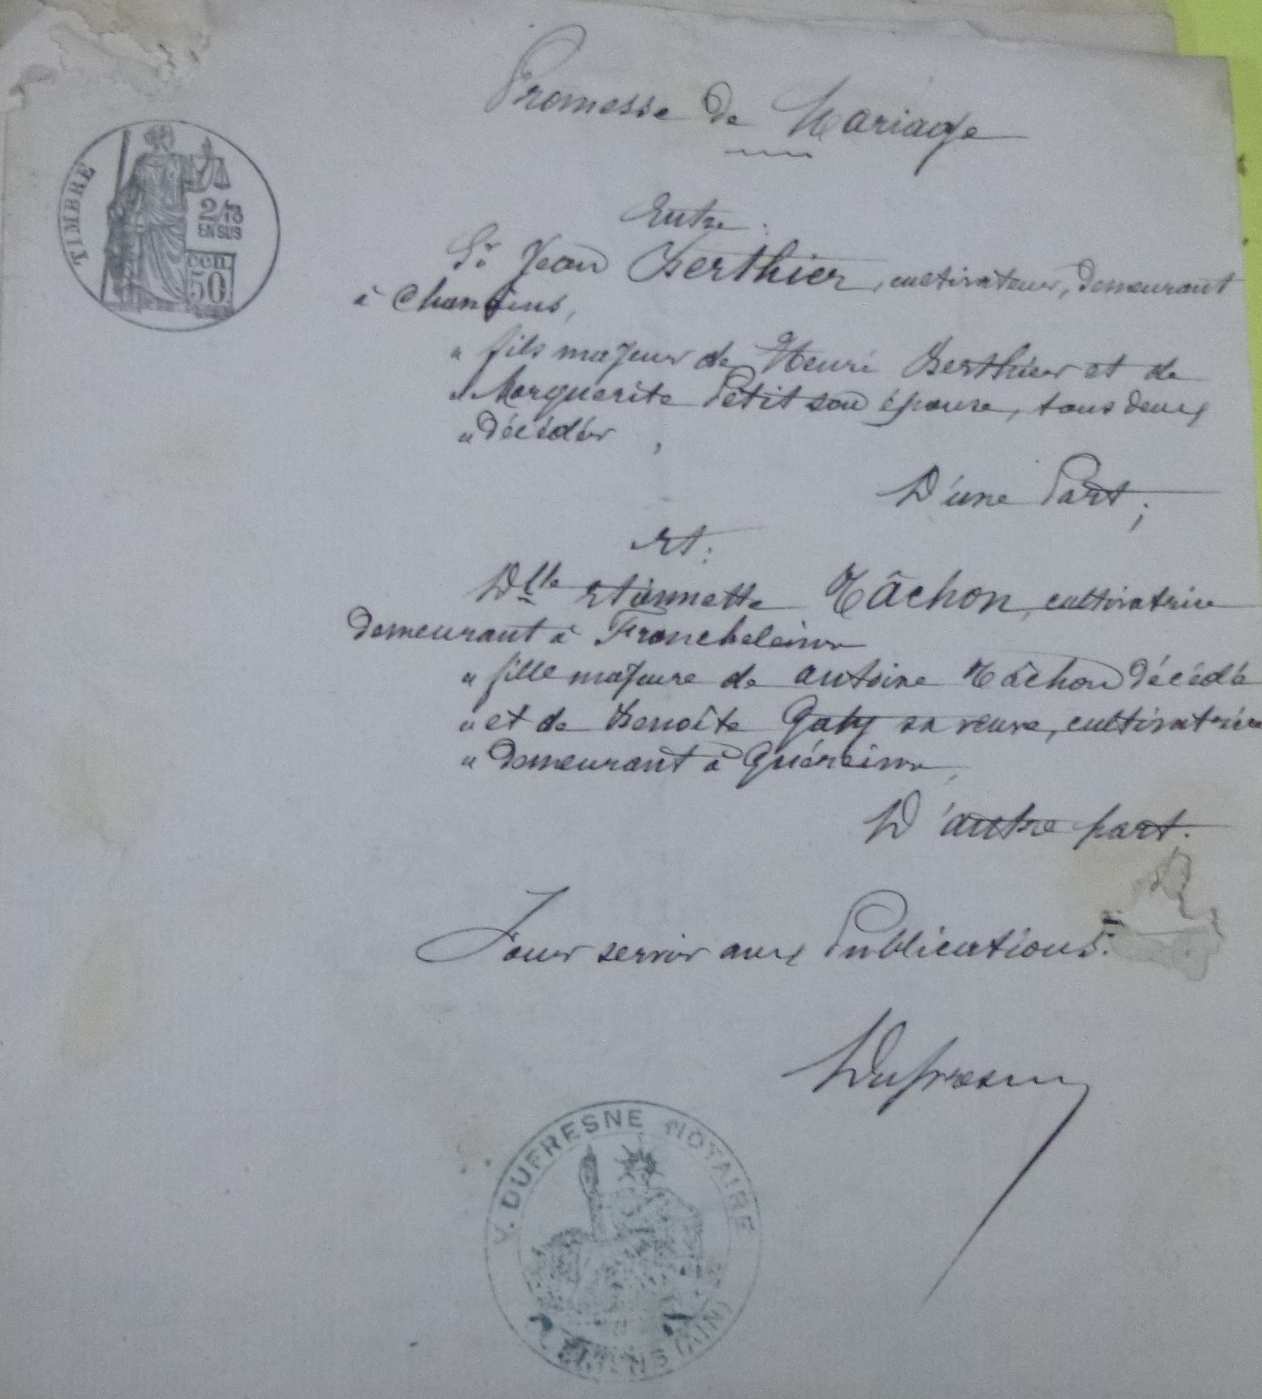 Promesse de Mariage
TIMBRE
2/10
EN SUS
CEN
50
Entre :
Sr Jean Berthier, cultivateur, demeurant
à Chaneins,
" fils majeur de Henri Berthier et de
" Marguerite Petit son épouse, tous deux
" décédés,
D'une Part ;
Et :
Dlle Etiennette Tâchon, cultivatrice
demeurant à Francheleins
" fille majeure de Antoine Tâchon décédé
" et de Benoîte Gaby sa veuve, cultivatrice
" demeurant à Guéreins,
D'autre part.
Pour servir aux Publications.
Dufresne
V. DUFRESNE NOTAIRE
(AIN)